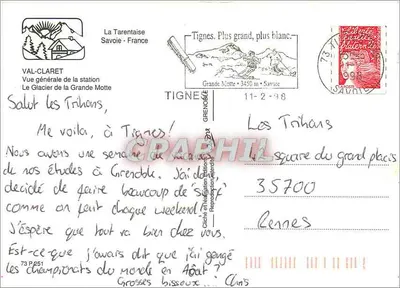 La Tarentaise
Savoie - France
VAL-CLARET
Vue générale de la station
Le Glacier de la Grande Motte
Tignes. Plus grand, plus blanc.
Grande Motte - 3450 m - Savoie
TIGNES
11-2-98
1998
SAVOIE
Salut les Trihans,
Me voila, à Tignes!
Nous avons une semaine de
de nos études à Grenoble. J'ai
décidé de faire beaucoup de "surf"
comme on fait chaque weekend!
J'éspère que tout va bien chez vous.
Est-ce que j'avais dit que j'ai gangé
les championats du monde en Août?
Grosses bissoux... Chris
Los Trihans
square du grand placis
35700
Rennes
73 P 251
CPAPHIL